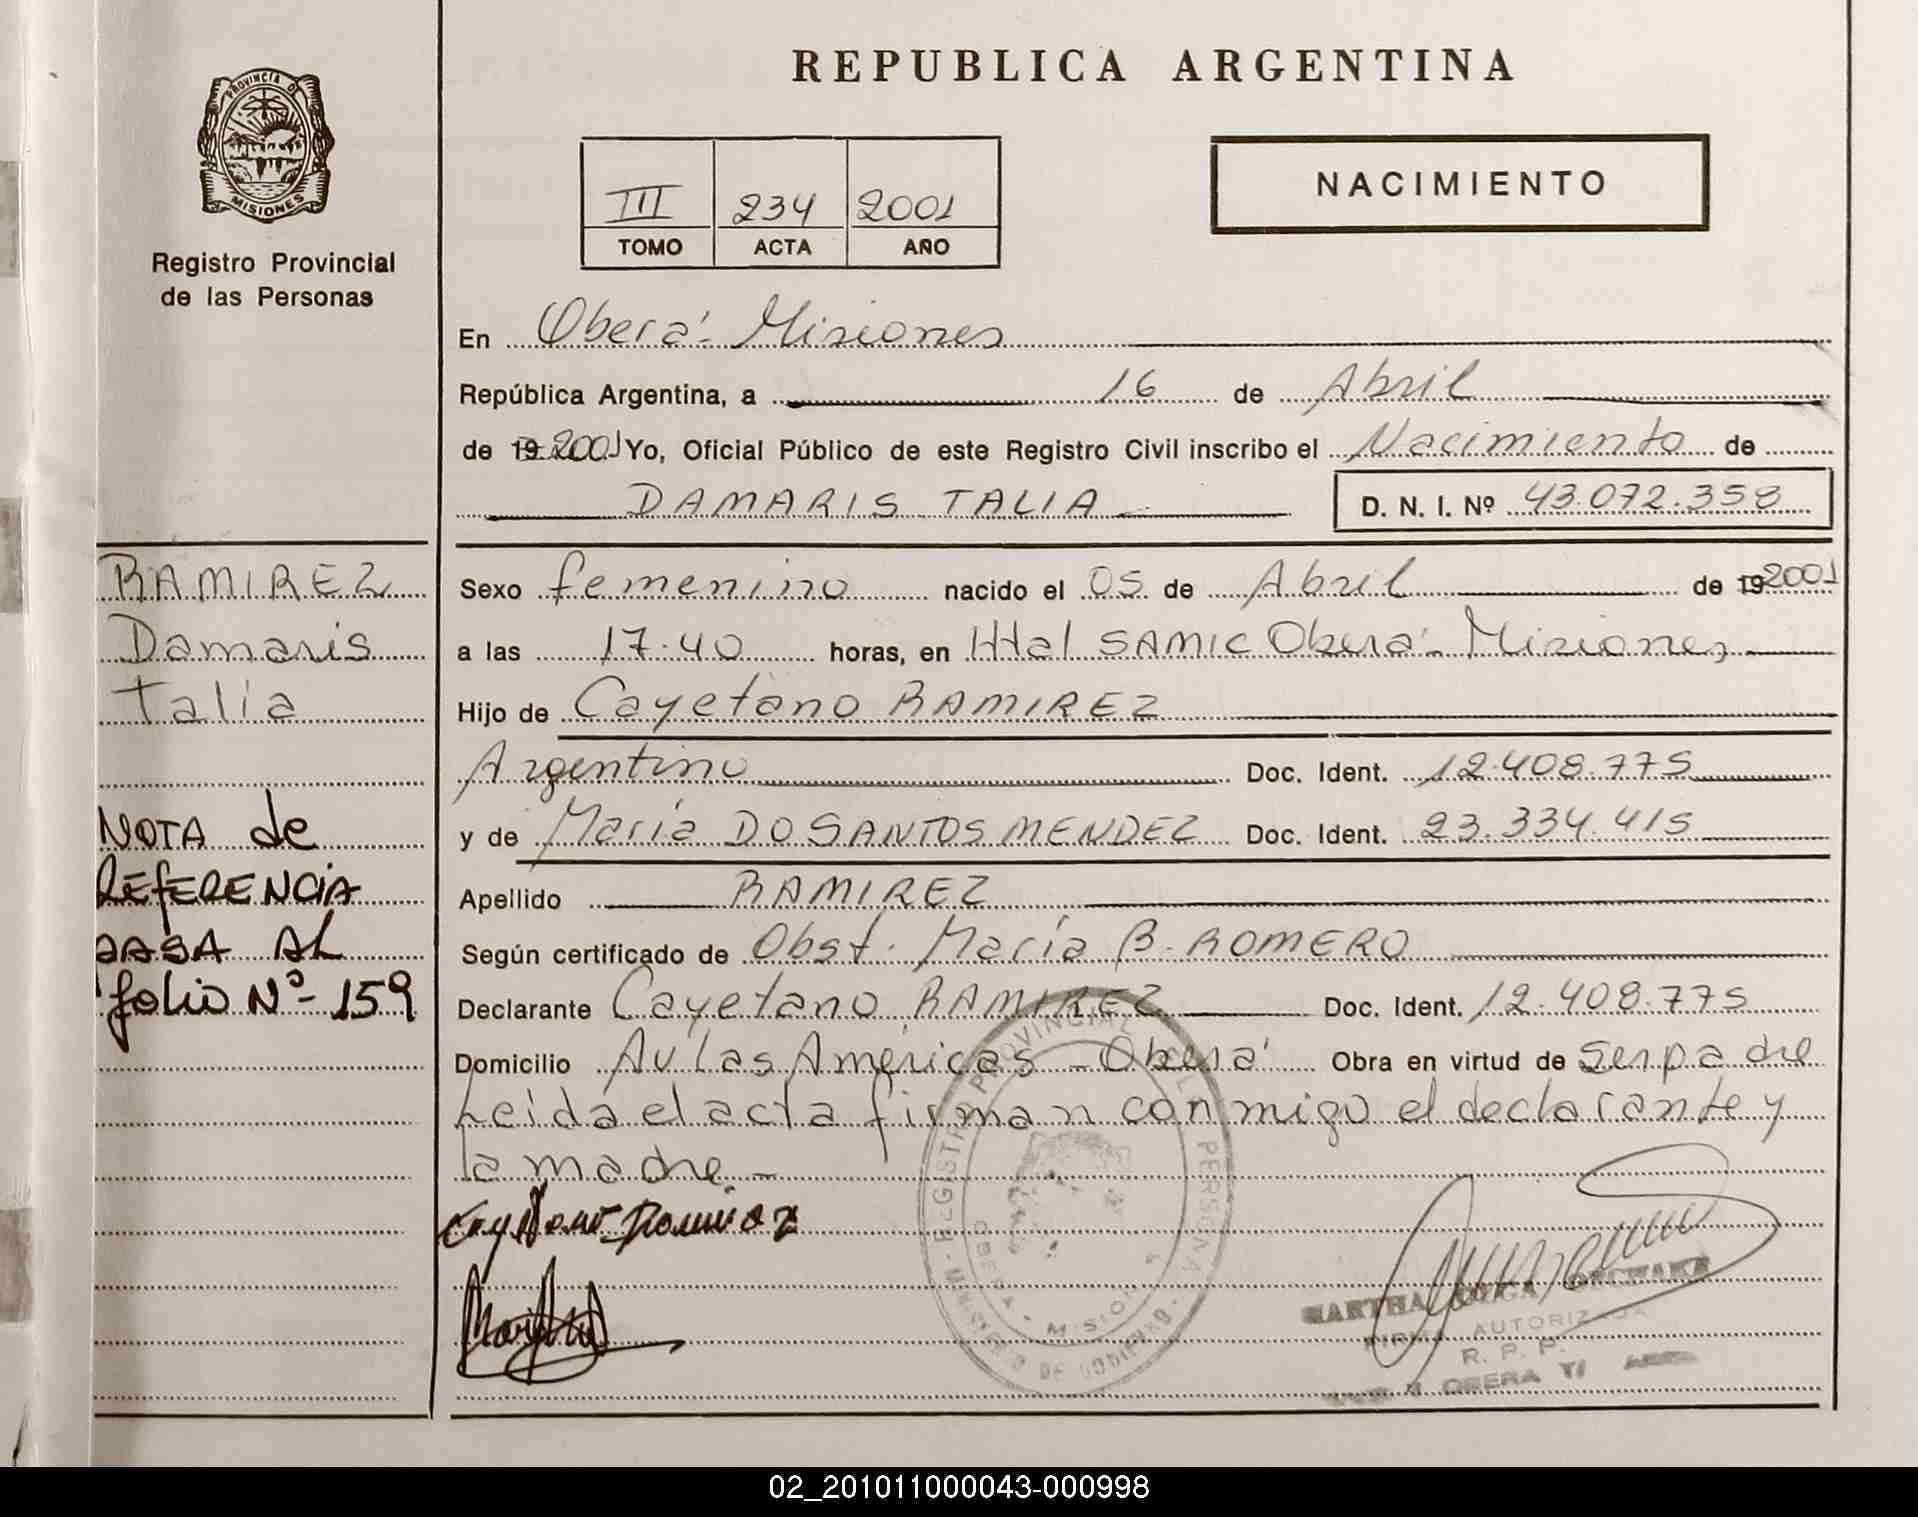 REPUBLICA ARGENTINA
PROVINCIA DE
MISIONES
Registro Provincial
de las Personas
III 234 2001
TOMO ACTA AÑO
NACIMIENTO
En Oberá - Misiones
República Argentina, a 16 de Abril
de 19 2001 Yo, Oficial Público de este Registro Civil inscribo el Nacimiento de
DAMARIS TALIA D. N. I. Nº 43.072.358
RAMIREZ
Damaris
Talia
NOTA de
REFERENCIA
PASA AL
folio Nº - 159
Sexo femenino nacido el 05 de Abril de 19 2001
a las 17.40 horas, en Htal SAMIC Oberá - Misiones
Hijo de Cayetano RAMIREZ
Argentino Doc. Ident. 12.408.775
y de María DO SANTOS MENDEZ Doc. Ident. 23.334.415
Apellido RAMIREZ
Según certificado de Obst. María B. ROMERO
Declarante Cayetano RAMIREZ Doc. Ident. 12.408.775
Domicilio Av Las Américas - Oberá Obra en virtud de ser padre
Leida el acta firman conmigo el declarante y
la madre -
REGISTRO PROVINCIAL DE LAS PERSONAS
MINISTERIO DE GOBIERNO
OBERA - MISIONES
MARTHA OLGA
FIRMA AUTORIZADA
R. P. P.
OBERA
02_201011000043-000998